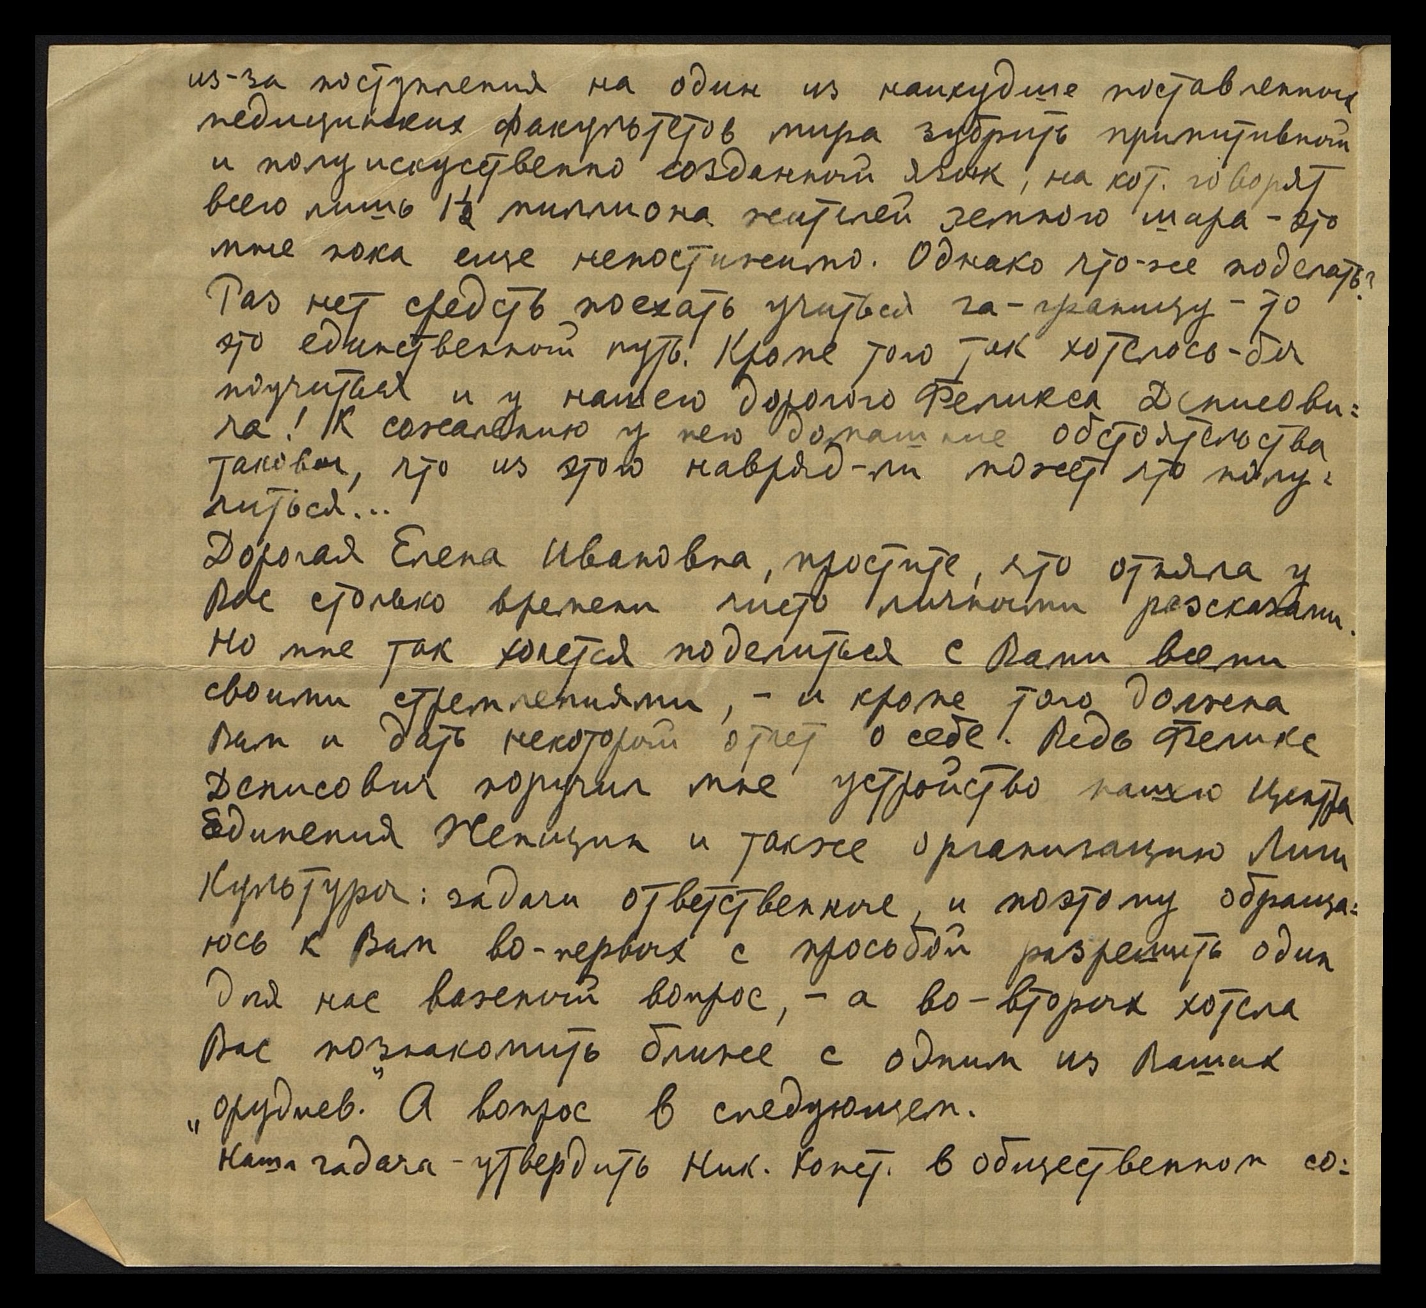 из-за поступления на один из наихудше поставленных
медицинских факультетов мира зубрить примитивный
и полуискуственно созданный язык, на кот. говорят
всего лишь 1½ миллиона жителей земного шара - это
мне пока еще непостижимо. Однако что-же поделать?
Раз нет средств поехать учиться за-границу - то
это единственный путь. Кроме того так хотелось-бы
поучиться и у нашего дорогого Феликса Денисови=
ча! К сожалению у него домашние обстоятельства
таковы, что из этого навряд-ли может что полу=
читься...
Дорогая Елена Ивановна, простите, что отняла у
Вас столько времени чисто личными разсказами.
Но мне так хочется поделиться с Вами всеми
своими стремлениями, - и кроме того должна
Вам и дать некоторый отчет о себе. Ведь Феликс
Денисович поручил мне устройство нашего Центра
Единения Женщин и также организацию Лиги
Культуры: задачи ответственные, и поэтому обраща=
юсь к Вам во-первых с просьбой разрешить один
для нас важный вопрос, - а во-вторых хотела
Вас познакомить ближе с одним из Ваших
„орудиев." А вопрос в следующем.
Наша задача - утвердить Ник. Конст. в общественном со=